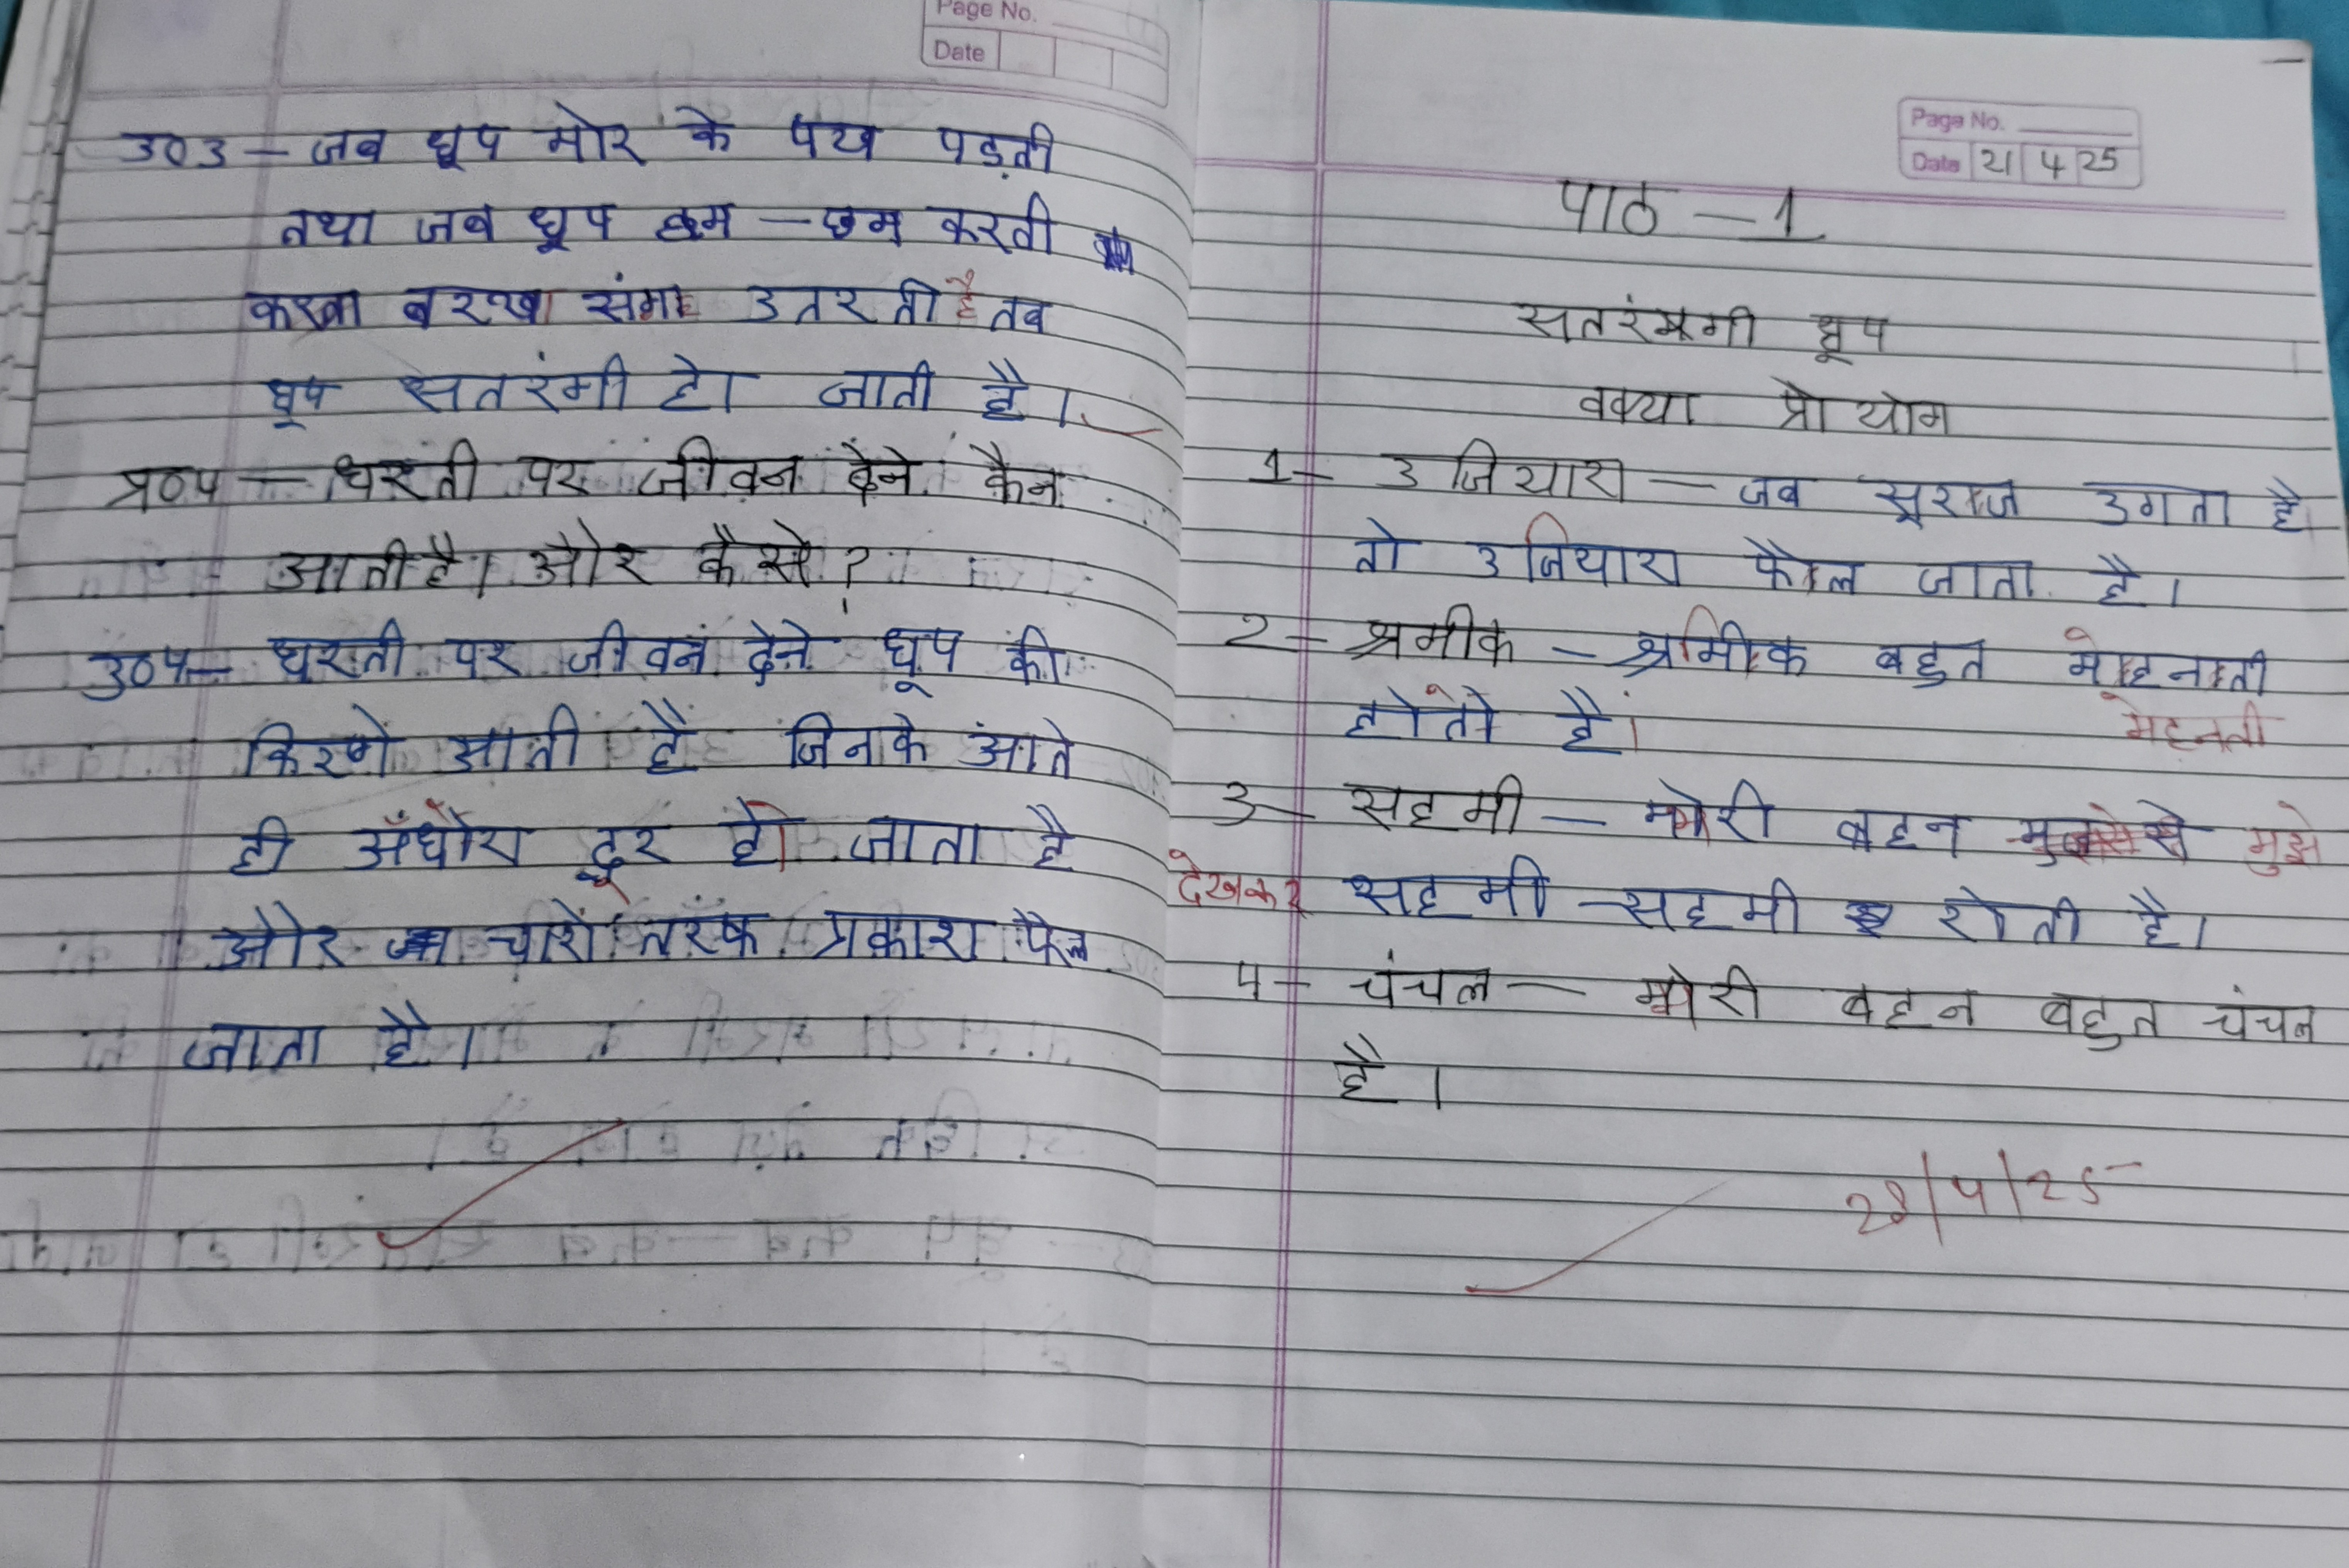 Page No.
Date
उ०3 – जब धूप मोर के पंख पड़ती
तथा जब धूप छम – छम करती
बरखा संग उतरती है तब
धूप सतरंगी हो जाती है।
प्र०4 – धरती पर जीवन देने कौन
आती है। और कैसे ?
उ०4 – धरती पर जीवन देने धूप की
किरणे आती है जिनके आते
ही अँधेरा दूर हो जाता है
और चारों तरफ प्रकाश फैल
जाता है।
Page No.
Date 21 4 25
पाठ – 1
सतरंगी धूप
वक्या प्रोयोग
1– उजियारा – जब सूरज उगता है
तो उजियारा फैल जाता है।
2– श्रमीक – श्रमिक बहुत मेहनाती
होते है। मेहनती
3– सहमी – मेरी बहन मुझे
देखकर सहमी – सहमी रोती है।
4– चंचल – मेरी बहन बहुत चंचल
है।
28/4/25